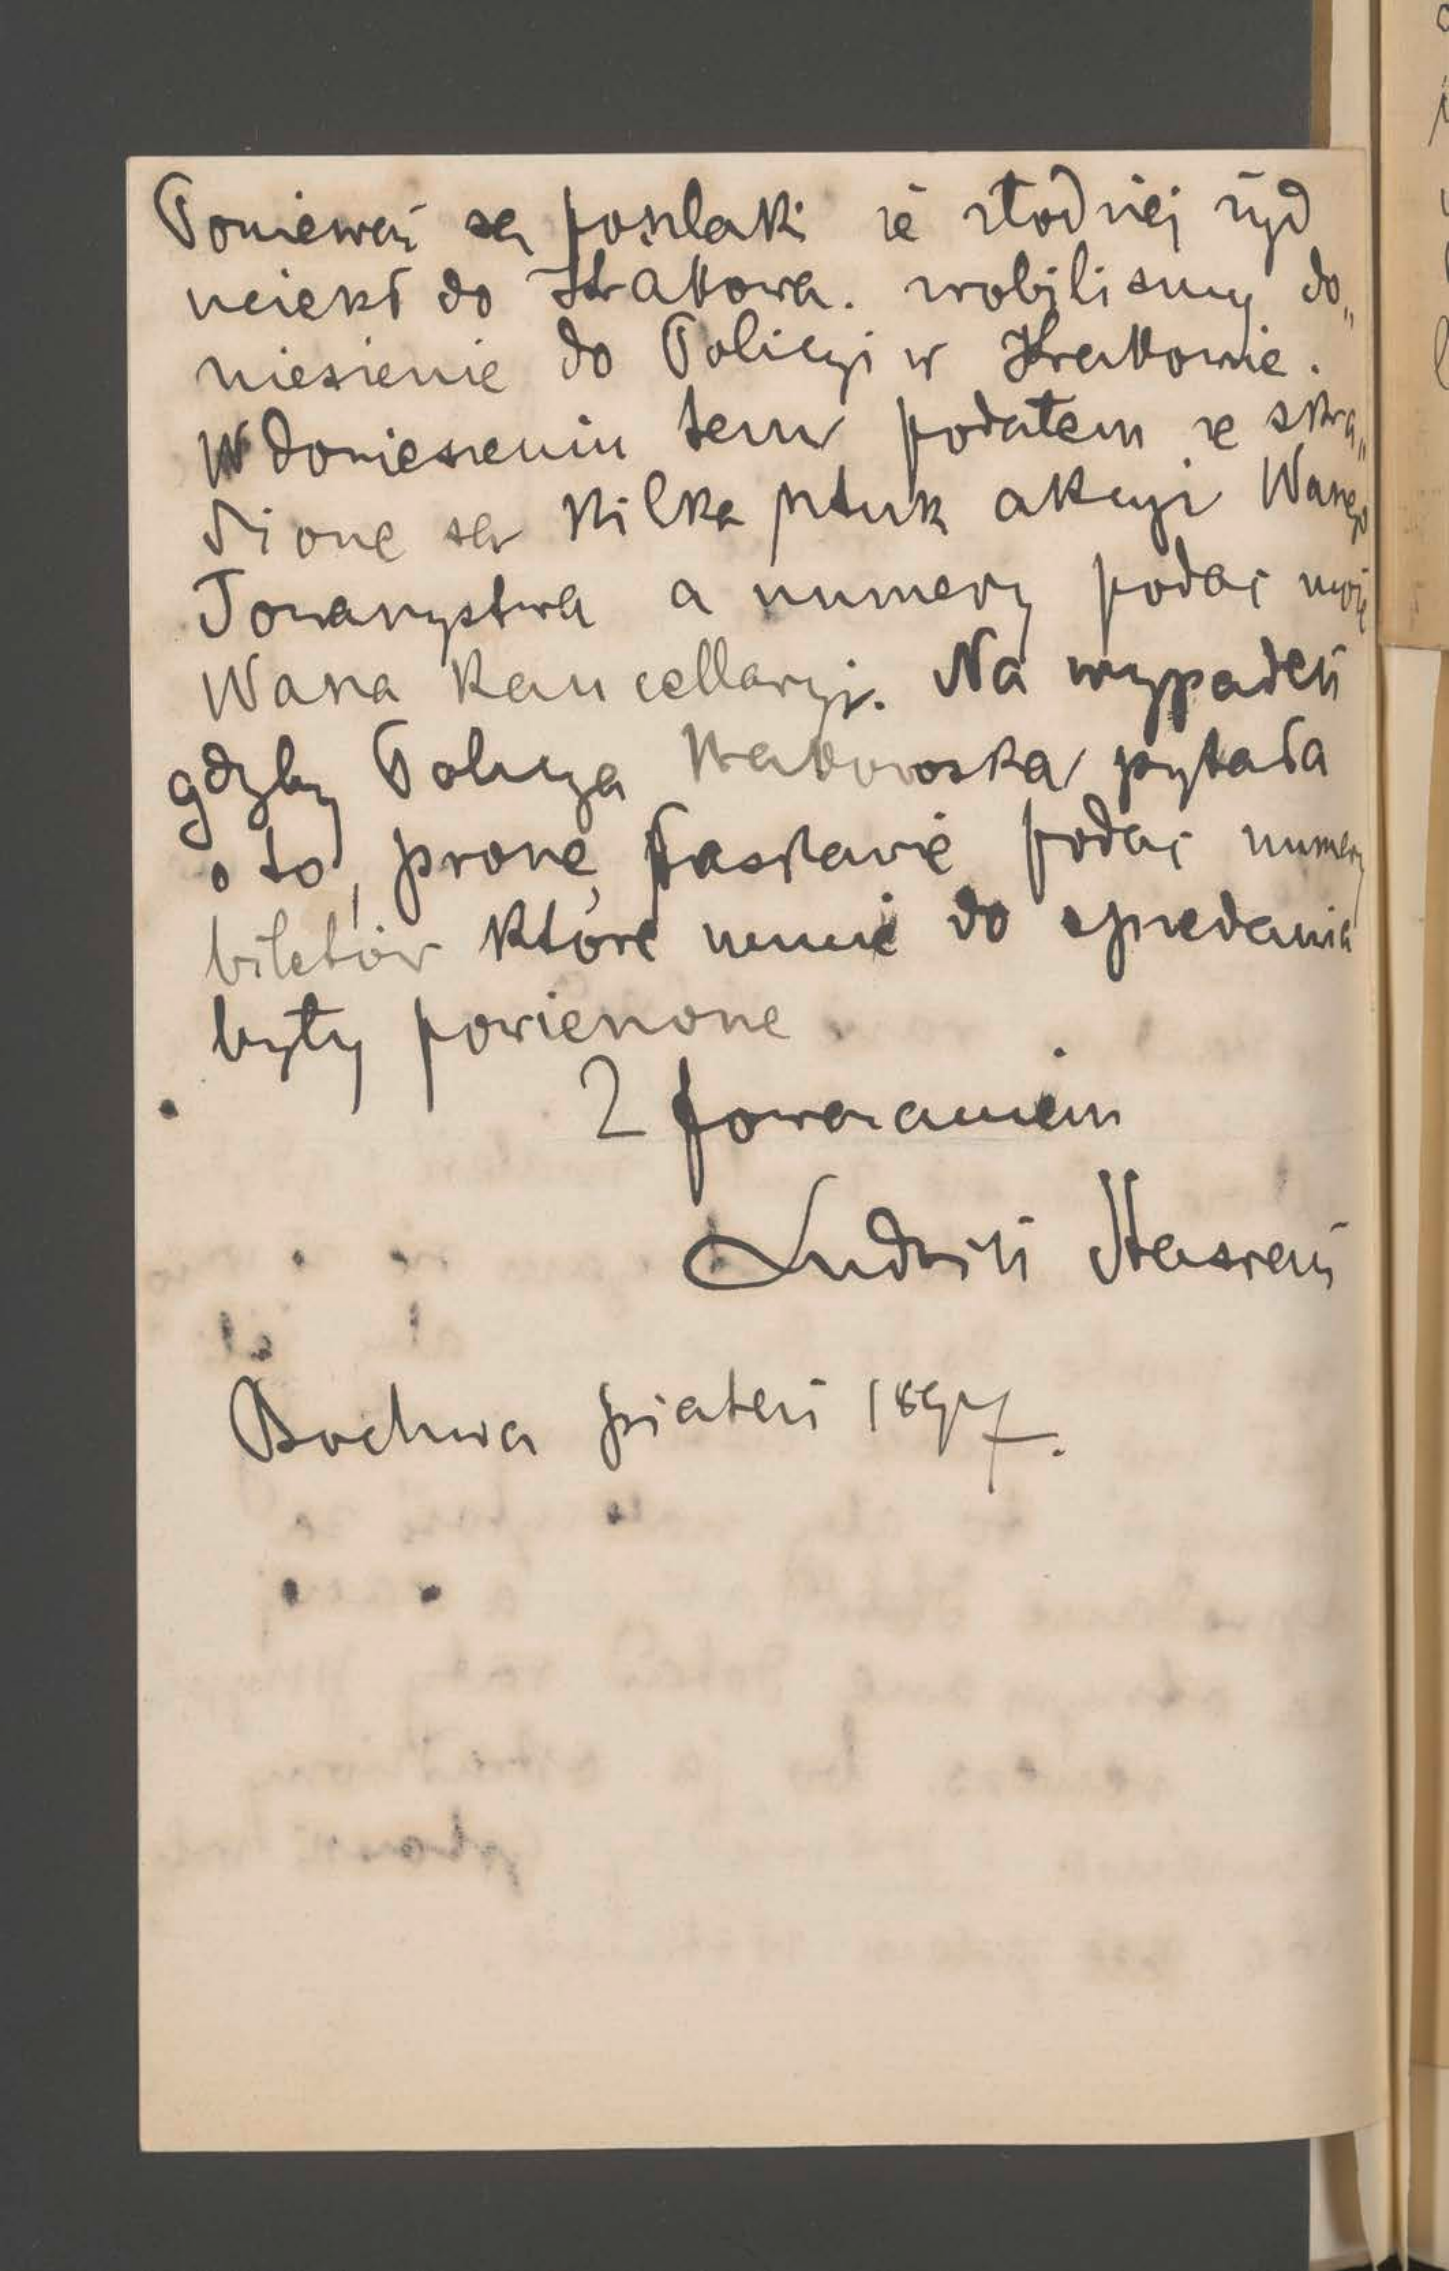 Ponieważ są poszlaki że złodziej żyd
uciekł do Krakowa. zrobiliśmy do„
niesienie do Policyi w Krakowie.
W doniesieniu tem podałem że skra„
dzione są kilka sztuk akcyi Waszego
Towarzystwa a numery podać może
Wasza Kancellarya. Na wypadek
gdyby Policya Krakowska pytała
o to, proszę łaskawie podać numery
biletów które mnie do sprzedania
były powierzone
Z poważaniem
Ludwik Stasiak
Bochnia piątek 1897.